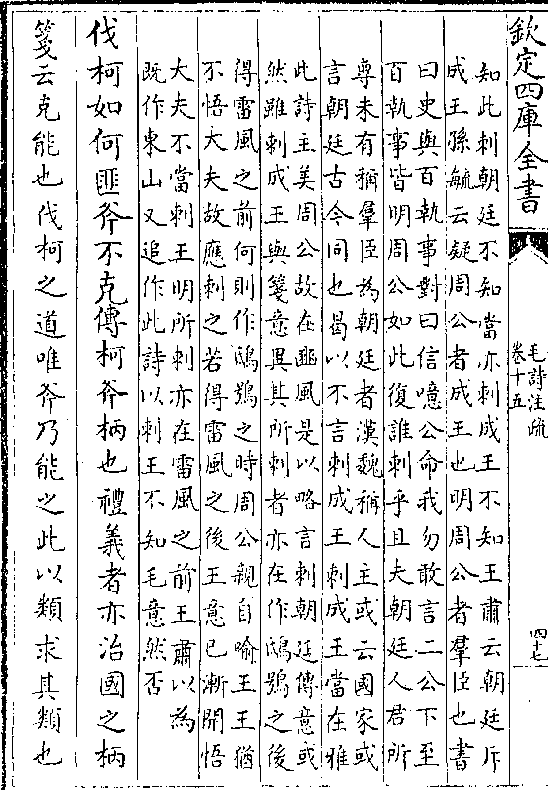 欽定四庫全書
毛詩注疏
卷十五
四十七
知此刺朝廷不知當亦刺成王不知王肅云朝廷斥
成王孫毓云疑周公者成王也明周公者羣臣也書
曰史與百執事對曰信噫公命我勿敢言二公下至
百執事皆明周公如此復誰刺乎且夫朝廷人君所
尊未有稱羣臣為朝廷者漢魏稱人主或云國家或
言朝廷古今同也曷以不言刺成王刺成王當在雅
此詩主美周公故在豳風是以略言刺朝廷傳意或
然雖刺成王與箋意異其所刺者亦在作鴟鴞之後
得雷風之前何則作鴟鴞之時周公親自喻王王猶
不悟大夫故應刺之若得雷風之後王意已漸開悟
大夫不當刺王明所刺亦在雷風之前王肅以為
既作東山又追作此詩以刺王不知毛意然否
伐柯如何匪斧不克傳柯斧柄也禮義者亦治國之柄
箋云克能也伐柯之道唯斧乃能之此以類求其類也